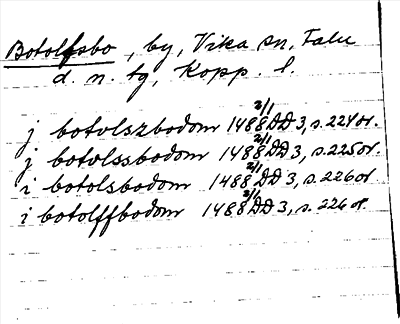 Botolfsbo, by, Vika sn, Falu
d. n. tg, Kopp. l.
j botolszbodom 1488 2/1 DD 3, s. 224 or.
j botolssbodom 1488 2/1 DD 3, s. 225 or.
i botolsbodom 1488 2/1 DD 3, s. 226 or.
i botolffbodom 1488 2/1 DD 3, s. 226 or.